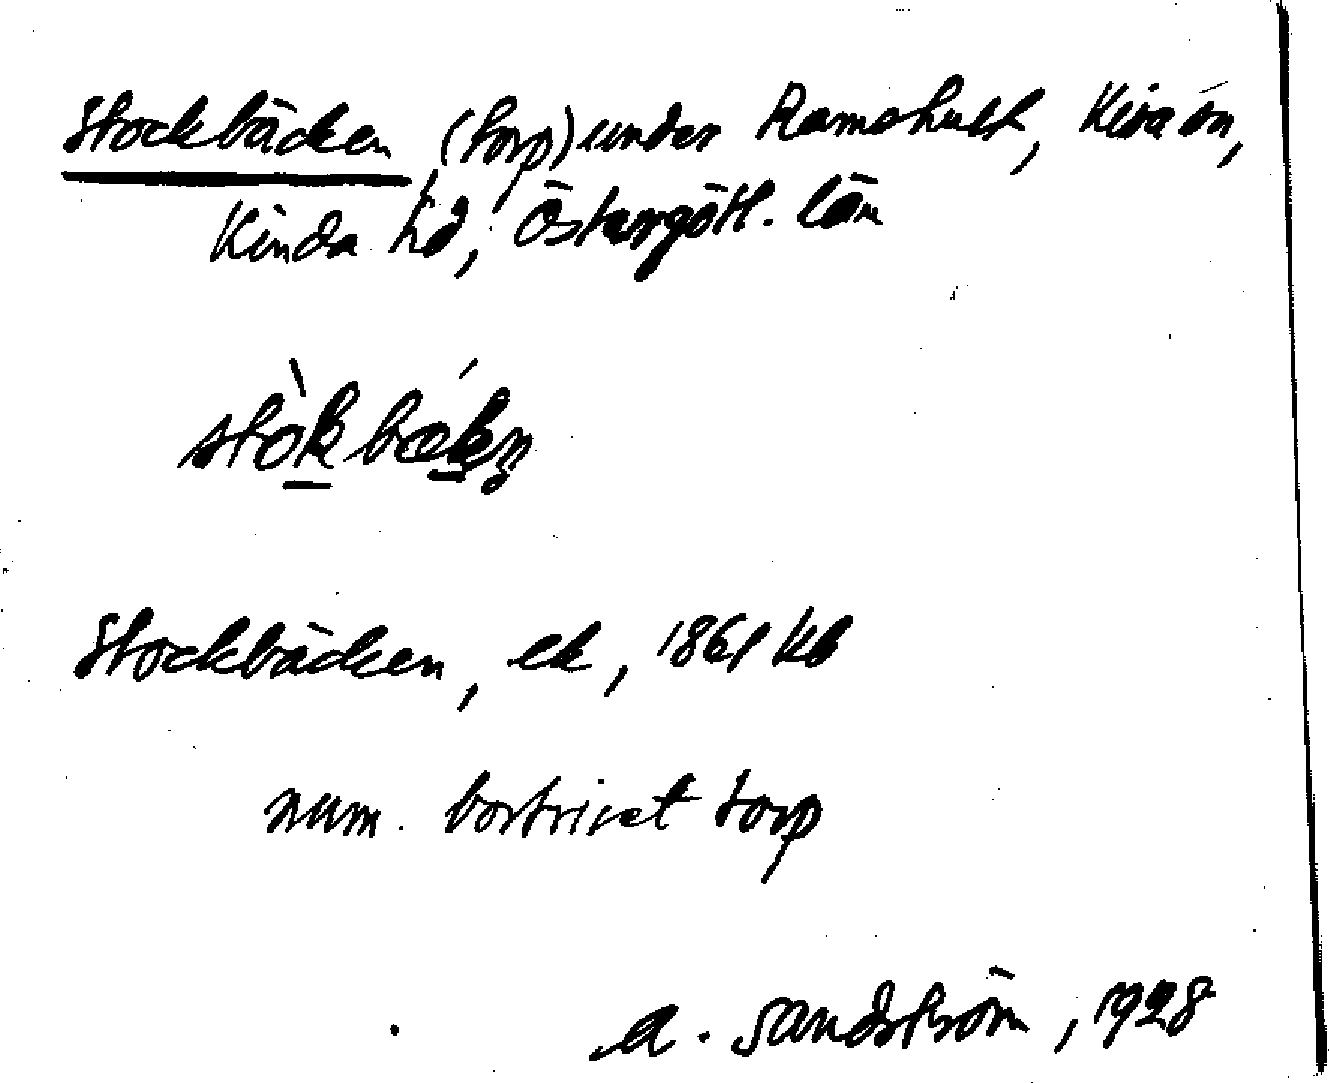 Stockbäcken (torp) under Ramshult, Kisa sn,
Kinda hd, Östergötl. län
stòkbǽkn̥
Stockbäcken, ek, 1861 kb
num. bortrivet torp
A. Sandström, 1928